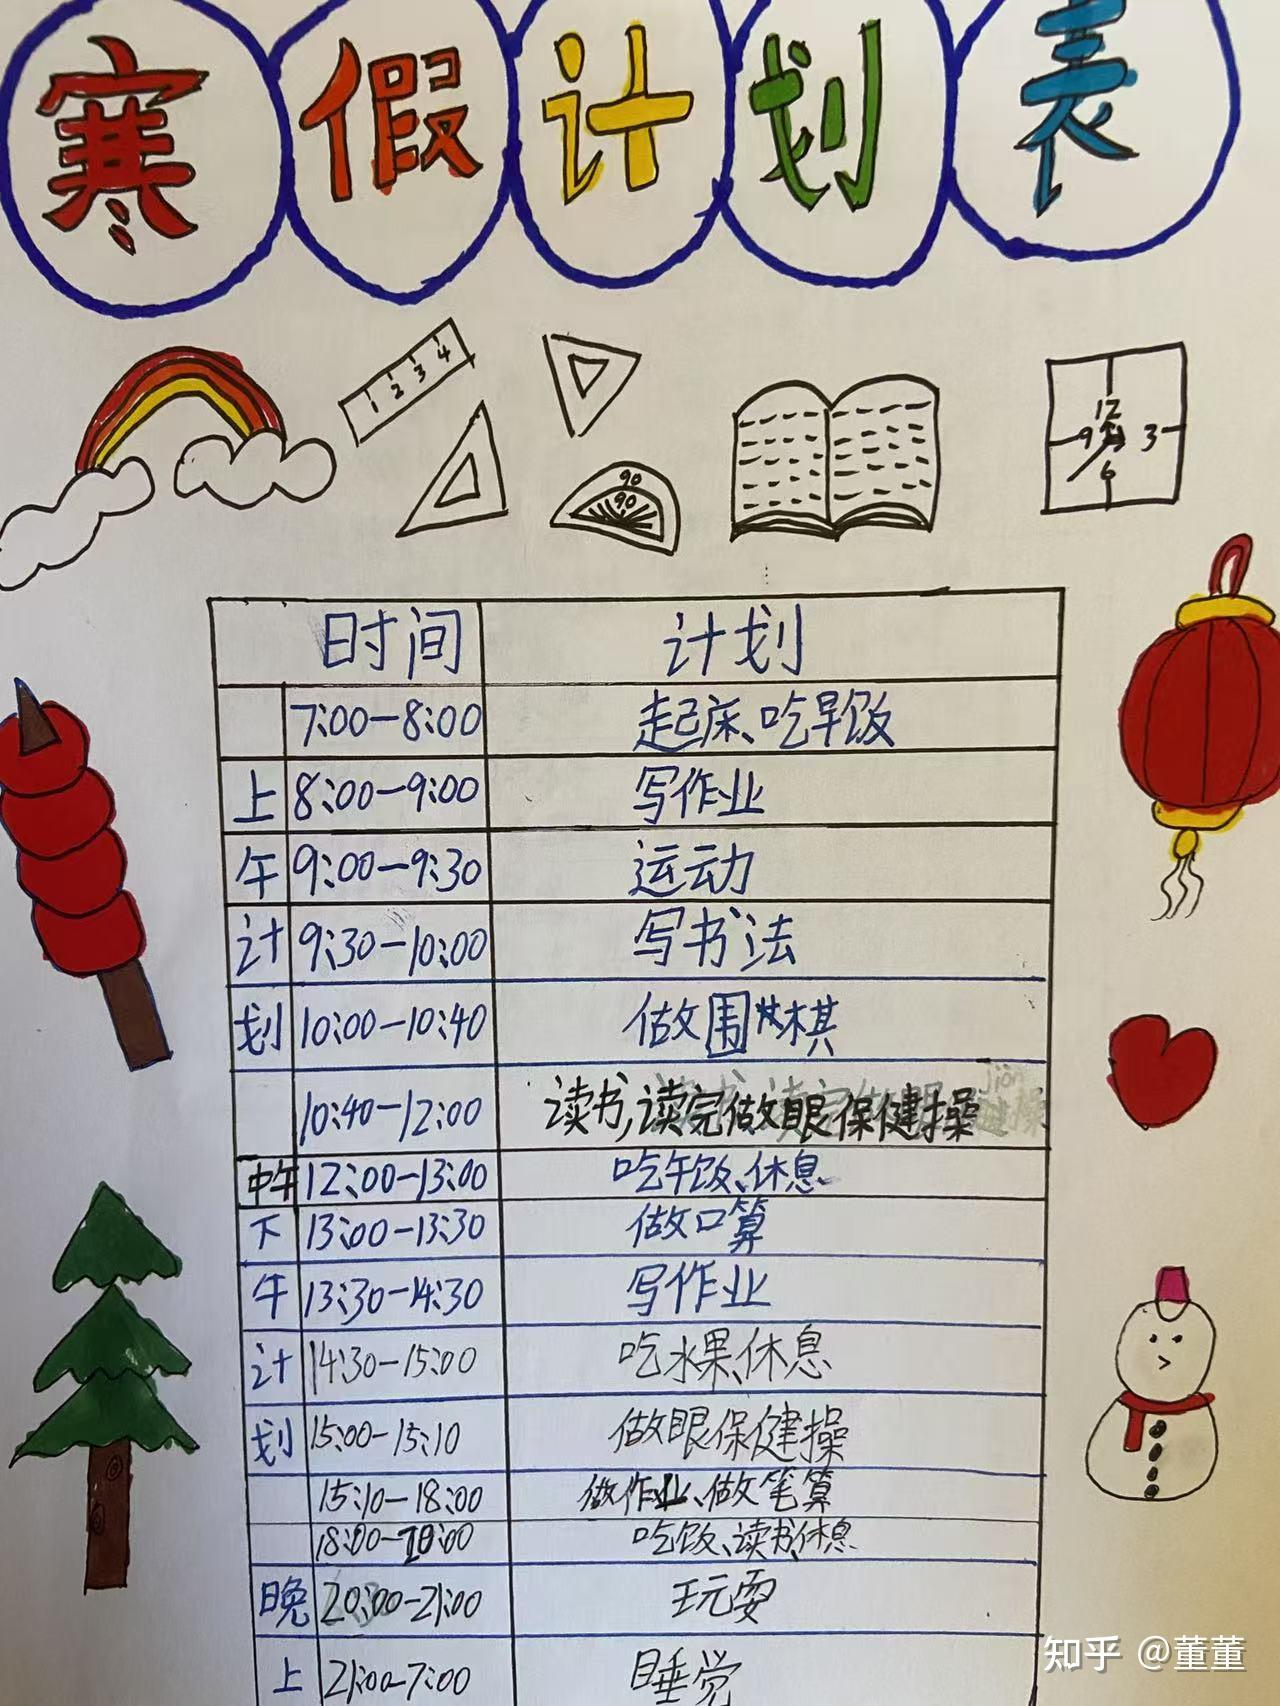 寒假计划表
1 2 3 4
90
90
12
9 3
6
时间 计划
7:00-8:00 起床、吃早饭
上 8:00-9:00 写作业
午 9:00-9:30 运动
计 9:30-10:00 写书法
划 10:00-10:40 做围棋
10:40-12:00 读书,读完做眼保健操
中午 12:00-13:00 吃午饭、休息
下 13:00-13:30 做口算
午 13:30-14:30 写作业
计 14:30-15:00 吃水果、休息
划 15:00-15:10 做眼保健操
15:10-18:00 做作业、做笔算
18:00-20:00 吃饭、读书、休息
晚 20:00-21:00 玩耍
上 21:00-7:00 睡觉
知乎 @董董